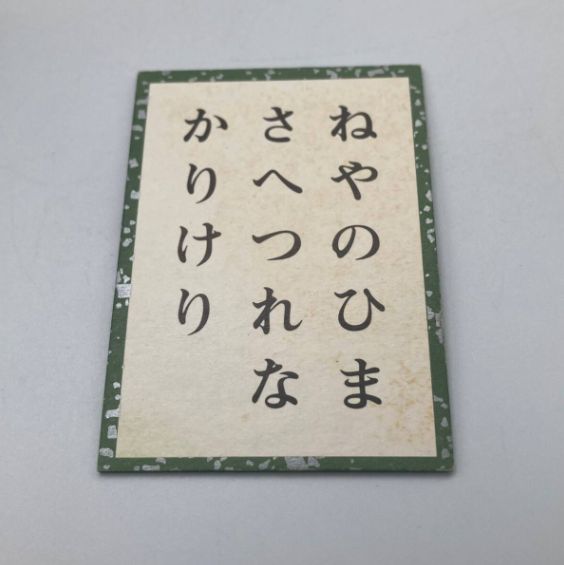 ねやのひま
さへつれな
かりけり